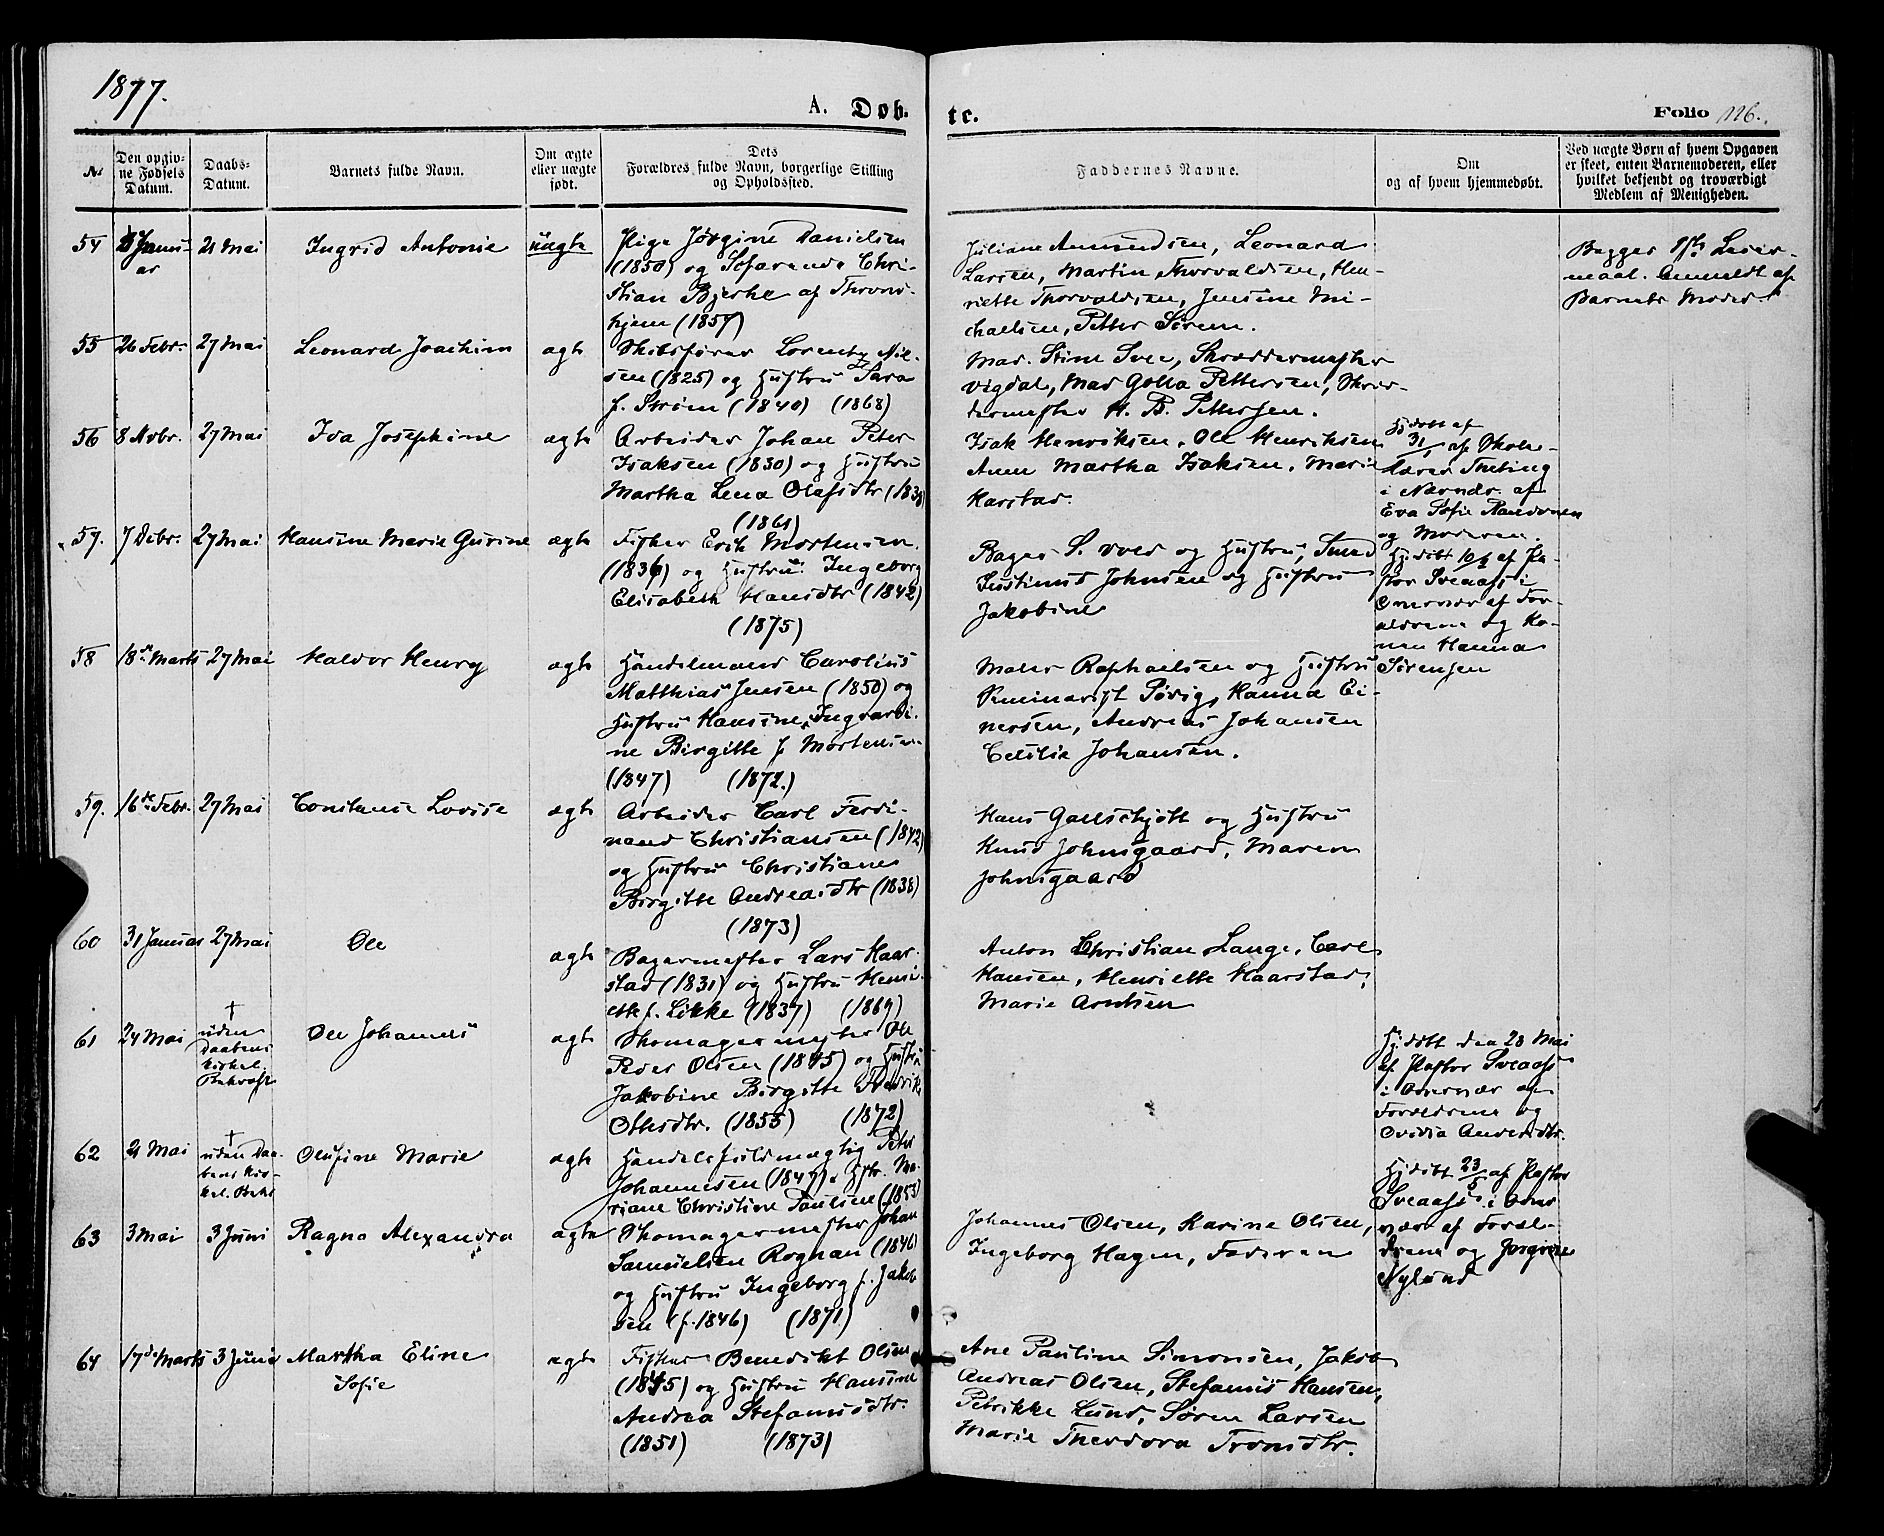 1877.
A. Døb-
te.
Folio 126.
No
Den opgiv-
ne Fødsels
Datum.
Daabs-
Datum.
Barnets fulde Navn.
Om ægte
eller uægte
født.
Dets
Forældres fulde Navn, borgerlige Stilling
og Opholdssted.
Faddernes Navne.
Om
og af hvem hjemmedøbt.
Ved uægte Børn af hvem Opgaven
er skeet, enten Barnemoderen, eller
hvilket bekjendt og troværdigt
Medlem af Menigheden.
54
Janu-
ar
21 Mai
Ingrid Antonie
uægte
Pige Jørgine Danielsen
(1850) og Chri-
stian Bjerke af Thrond-
hjem (1857)
Juliane Amundsen, Leonard
Larsen, Martin Thorvaldsen, Hen-
riette Thorvaldsen, Jensine Mi-
chaelsen, Petter
Begges 1ste Leier-
maal. Anmeldt af
Barnets Moder
55
26 Febr.
27 Mai
Leonard Joachim
ægte
Skibsfører Lorentz Nil-
sen (1825) og Hustru Sara
f. Strøm (1840) (1868)
Mad. Stine Svee, Skræddermester
Vigdal, Mad Golla Pettersen, Skræd-
dermester H. B. Pettersen.
56
8 Novbr.
27 Mai
Ida Josephine
ægte
Arbeider Johan Peter
Isaksen (1830) og Hustru
Martha Lena Olafsdtr
(1861)
Isak Henriksen, Ole Henriksen
Anne Martha Isaksen, Marie
Karstad.
Hjdøbt af
31/1 af Skole-
lærer
i Nærvær. af
Eva Sofie
og Moderen.
57.
7 Debr.
27 Mai
Hansine Marie Gurine
ægte
Fisker Erik Mortensen
(1836) og Hustru Ingeborg
Elisabeth Hansdtr (1842)
(1875)
Bager S. Vold og Hustru, Smed
Justinus Johnsen og Hustru
Jakobine
Hjdøbt af Pa-
stor Sveaass i
Overvær af For-
ældrene og Ko-
nen Hanna
Sørensen
58
18de Marts
27 Mai
Haldor Henry
ægte
Handelsmand Carolius
Matthias Jensen (1850) og
Hustru Hansine Ingvardi-
ne Birgitte f Mortensen
(1847) (1872.)
Maler Raphaelsen og Hustru
Seminarist Søvig, Hanna Ei-
nersen, Andreas Johansen
Cecilie Johansen.
59.
16de Febr.
27 Mai
Constance Lovise
ægte
Arbeider Carl Ferdi-
nand Christiansen (1842)
og Hustru Christiane
Birgitte Andreasdtr (1838)
(1873)
Hans Gallschjøtt og Hustru
Knud Johnsgaard, Maren
Johnsgaard
60
31 Januar
27 Mai
Ole
ægte
Bagermester Lars Haar-
stad (1831) og Hustru Henri-
ette f. Likke (1837) (1869)
Anton Christian Lange, Carl
Hansen, Henriette Haarstad,
Marie Arntsen
61
24 Mai
†
uden
Daabens
kirkel.
Bekræft
Ole Johannes
ægte
Skomagermester Ole
Peder Olsen (1845) og Hustru
Jakobine Birgitte Fredrikke
Otthsdtr. (1855) (1872)
Hj. døbt den 28 Mai
af Pastor Sveaass
i Overvær af
Forældrene og
Ovidia Andersdtr.
62
21 Mai
†
uden Daa-
bens kir-
kel. Bekr
Olufine Marie
ægte
Handelsfuldmægtig Peter
Johannesen (1849) Hstr. Ma-
riane Christine Paulsen (1853)
Hjdøbt 23/5 af Pastor
Sveaass i Over-
vær af Foræl-
drene og Jørgine
Nylund
63
3 Mai
3 Juni
Ragna Alexandra
ægte
Skomagermester Johan
Samuelsen Rognan (1846)
og Hustru Ingeborg f. Jakob-
sen (f. 1846) (1871)
Johannes Olsen, Karine Olsen,
Ingeborg Hagen, Faderen
64
17de Marts
3 Juni
Martha Eline
Sofie
ægte
Fisker Benedikt Olsen
(1845) og Hustru Hansine
Andrea Stefanusdtr.
(1851) (1873)
Ane Pauline Simonsen, Jakob
Andreas Olsen, Stefanus Hansen,
Petrikke Lund, Søren Larsen
Marie Theodora Trondtr.